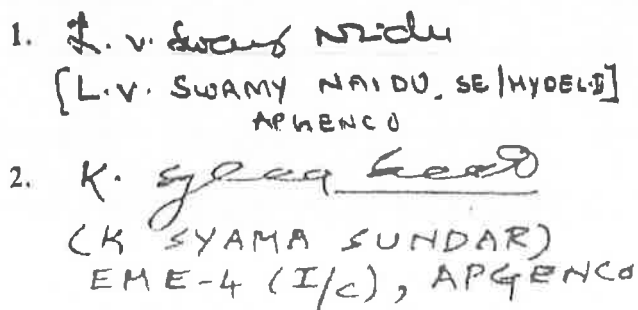 1. L. v. Swamy Naidu
[L.V. SWAMY NAIDU, SE/HYDEL-II]
APGENCO
2. K.
(K SYAMA SUNDAR)
EME-4 (I/c), APGENCO